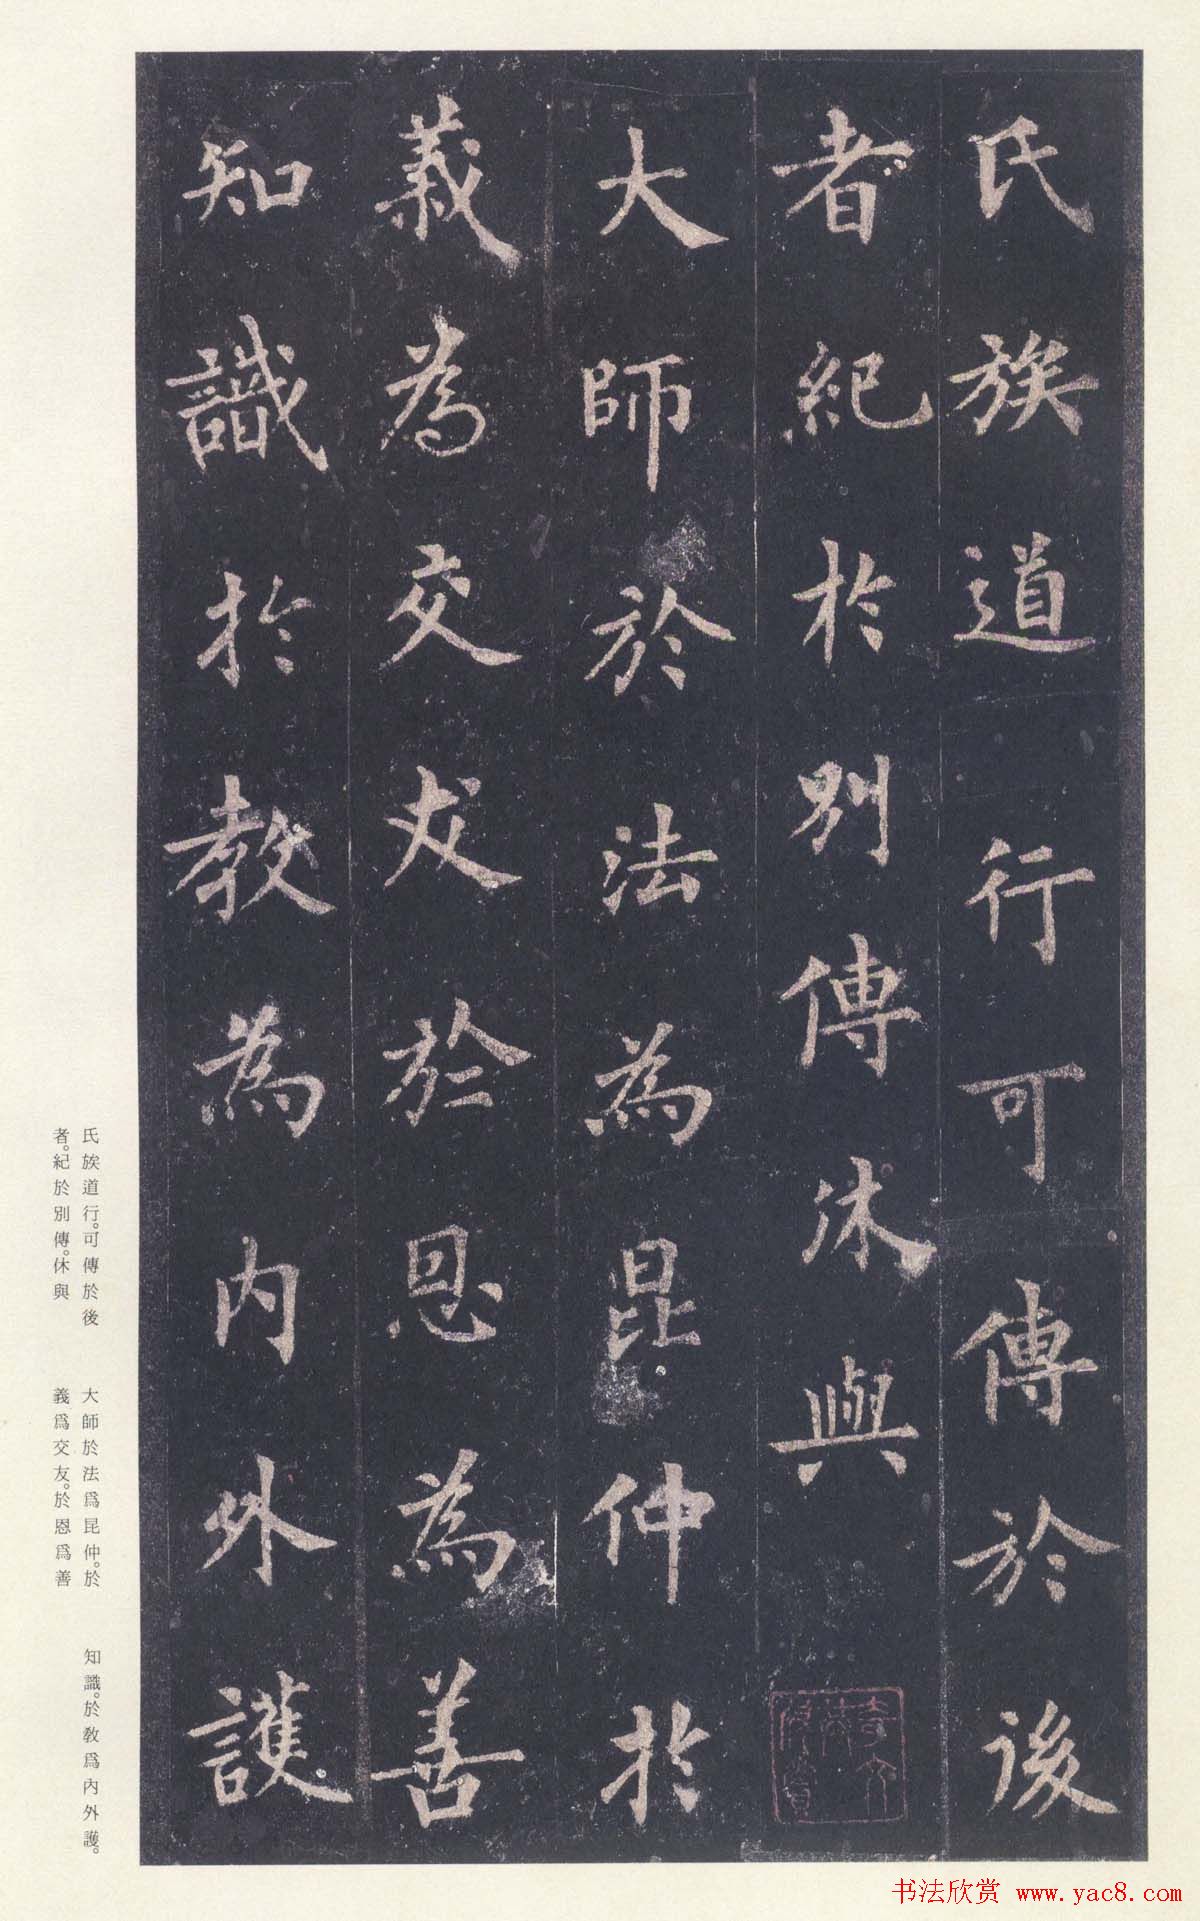 氏族道行可傳於後
者紀於別傳休與
大師於法為昆仲於
義為交友於恩為善
知識於教為內外護
氏族道行。可傳於後
者。紀於別傳。休與
大師於法爲昆仲。於
義爲交友。於恩爲善
知識。於教爲内外護。
书法欣赏 www.yac8.com